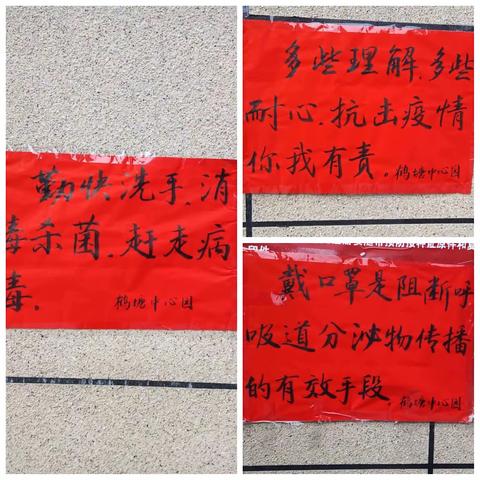 勤快洗手,消
毒杀菌,赶走病
毒。
鹤塘中心园
多些理解,多些
耐心,抗击疫情
你我有责。
鹤塘中心园
戴口罩是阻断呼
吸道分泌物传播
的有效手段
鹤塘中心园